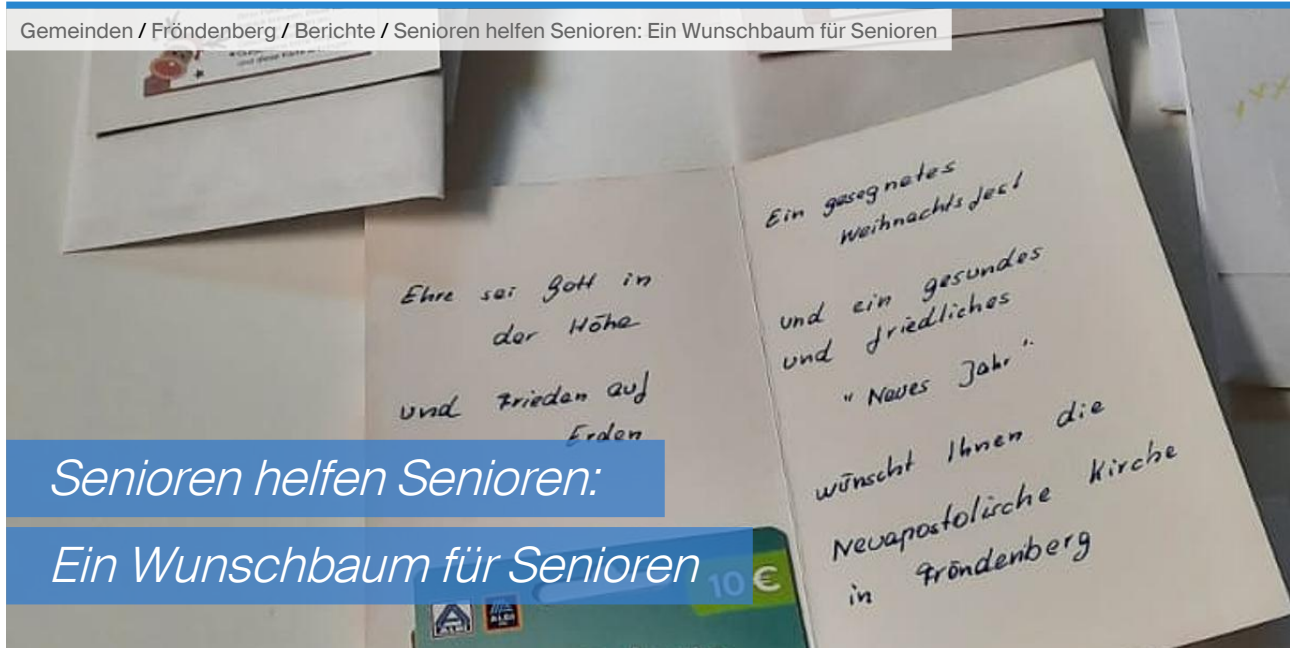 Gemeinden / Fröndenberg / Berichte / Senioren helfen Senioren: Ein Wunschbaum für Senioren
und diese Karte
Ehre sei Gott in
der Höhe
und Frieden auf
Erden
Ein gesegnetes
Weihnachtsfest
und ein gesundes
und friedliches
"Neues Jahr"
wünscht Ihnen die
Neuapostolische Kirche
in Fröndenberg
Senioren helfen Senioren:
Ein Wunschbaum für Senioren
10 €
ALDI
ALDI